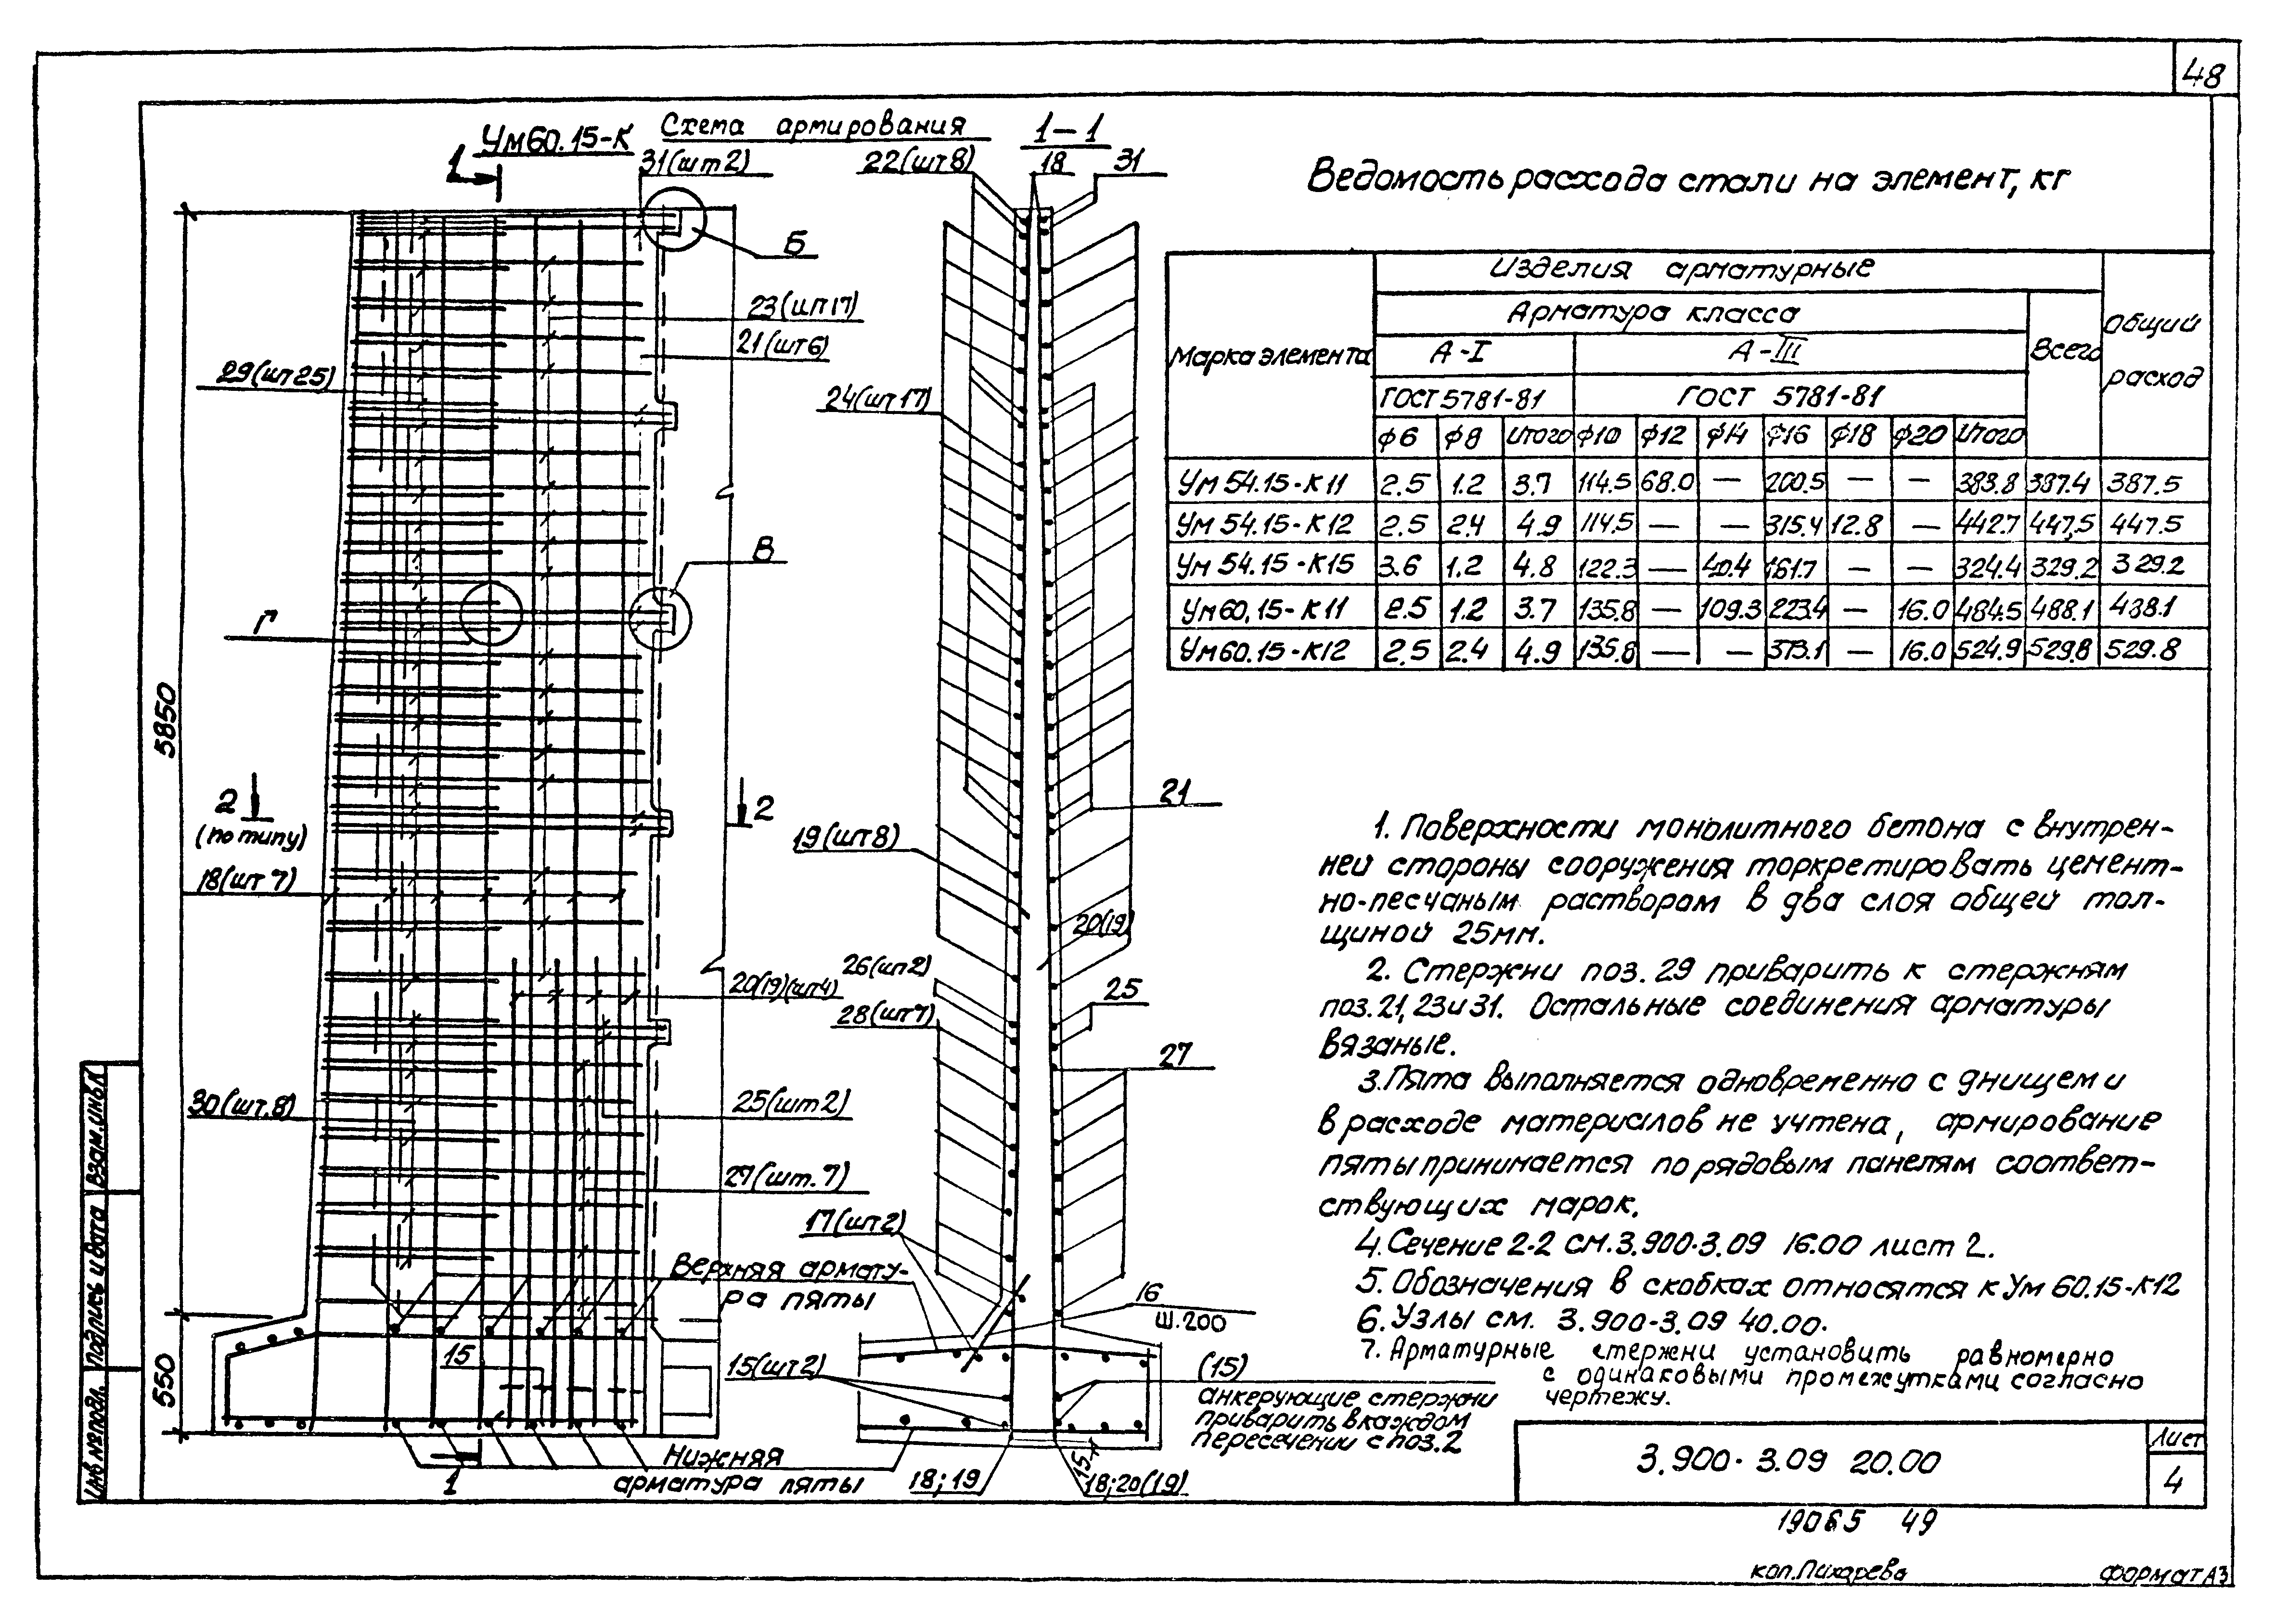 48
Ум60.15-К Схема армирования
1
31(шт2)
22(шт8)
1-1
18
31
Б
23(шт17)
21(шт6)
29(шт25)
24(шт17)
В
Г
5850
2
(по типу)
2
18(шт7)
19(шт8)
21
20(19)
20(19)(шт4)
26(шт2)
28(шт7)
25
27
30(шт.8)
25(шт2)
27(шт.7)
17(шт2)
Верхняя армату-
ра пяты
16
ш.200
550
15
15(шт2)
(15)
анкерующие стержни
приварить в каждом
пересечении с поз.2
1
Нижняя
арматура пяты
18;19
15
18;20(19)
Ведомость расхода стали на элемент, кг
Марка элемента
Изделия арматурные
Общий
расход
Арматура класса
Всего
А-I
А-III
ГОСТ 5781-81
ГОСТ 5781-81
ф6 ф8 Итого ф10 ф12 ф14 ф16 ф18 ф20 Итого
Ум 54.15-К11 2.5 1.2 3.7 114.5 68.0 — 200.5 — — 383.8 387.4 387.5
Ум 54.15-К12 2.5 2.4 4.9 114.5 — — 315.4 12.8 — 442.7 447,5 447.5
Ум 54.15-К15 3.6 1.2 4.8 122.3 — 40.4 161.7 — — 324.4 329.2 329.2
Ум60.15-К11 2.5 1.2 3.7 135.8 — 109.3 223.4 — 16.0 484.5 488.1 488.1
Ум60.15-К12 2.5 2.4 4.9 135.8 — — 373.1 — 16.0 524.9 529.8 529.8
1. Поверхности монолитного бетона с внутрен-
ней стороны сооружения торкретировать цемент-
но-песчаным раствором в два слоя общей тол-
щиной 25мм.
2. Стержни поз. 29 приварить к стержням
поз.21, 23 и 31. Остальные соединения арматуры
вязаные.
3.Пята выполняется одновременно с днищем и
в расходе материалов не учтена, армирование
пяты принимается по рядовым панелям соответ-
ствующих марок.
4.Сечение 2-2 см.3.900-3.09 16.00 лист 2.
5. Обозначения в скобках относятся к Ум 60.15-К12
6. Узлы см. 3.900-3.09 40.00.
7. Арматурные стержни установить равномерно
с одинаковыми промежутками согласно
чертежу.
3.900-3.09 20.00
Лист
4
Инв №подл. Подпись и дата Взам.инв.№
19065 49
коп.Пихарева
Формат А3